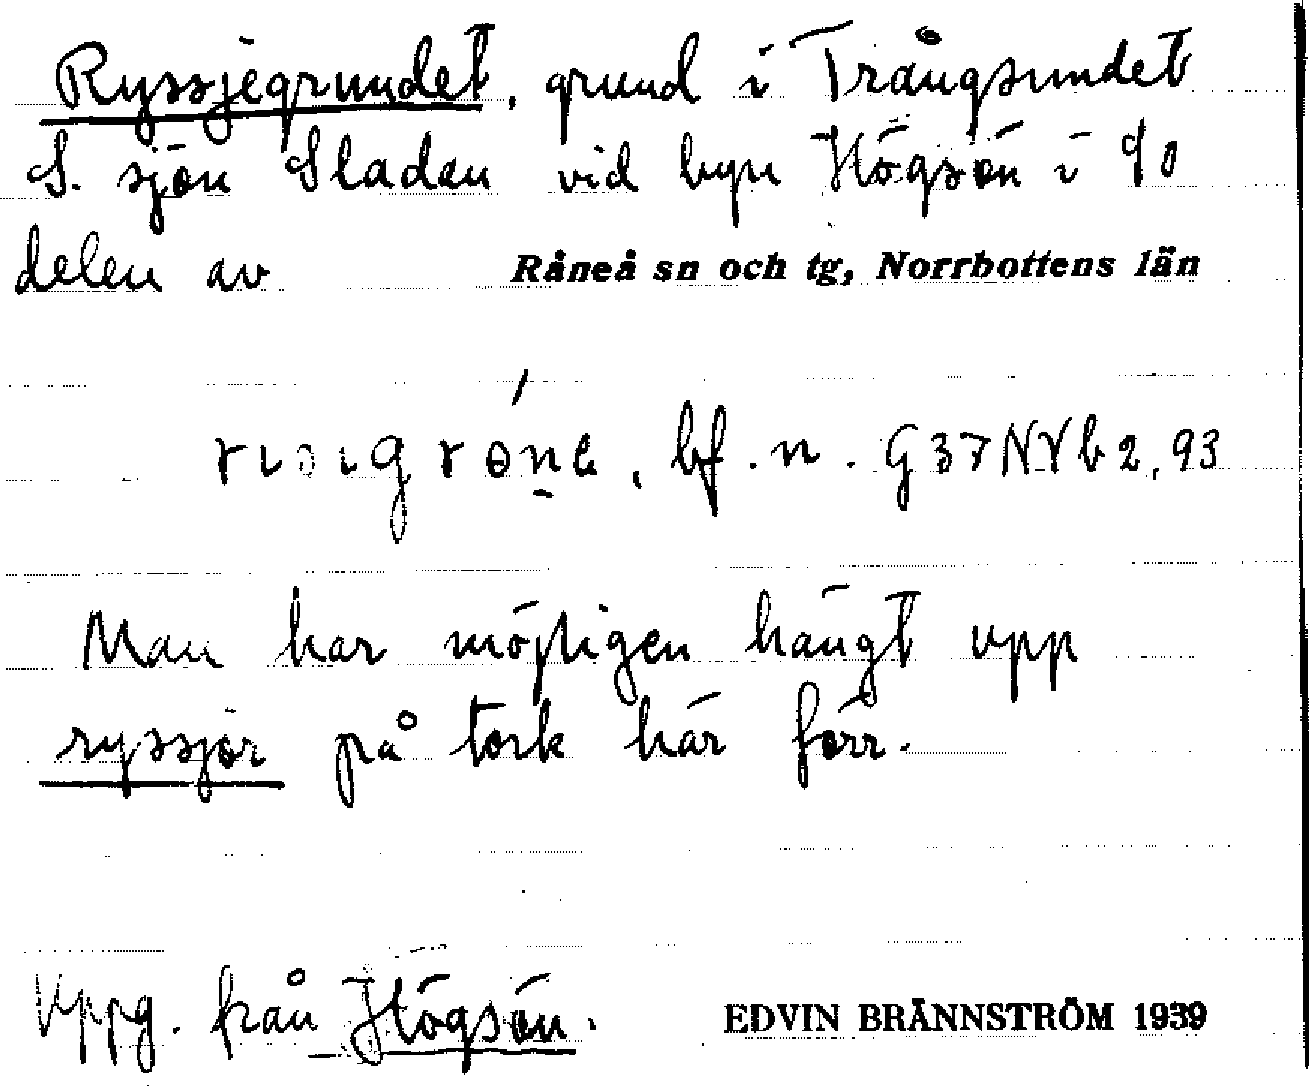 Ryssjegrundet, grund i Trångsundet
S. sjön Sladan vid byn Högsön i SO
delen av Råneå sn och tg, Norrbottens län
bf. n. G37NVb2,93
Man har möjligen hängt upp
ryssjor på tork här förr.
Uppg. från Högsön.
EDVIN BRÄNNSTRÖM 1939